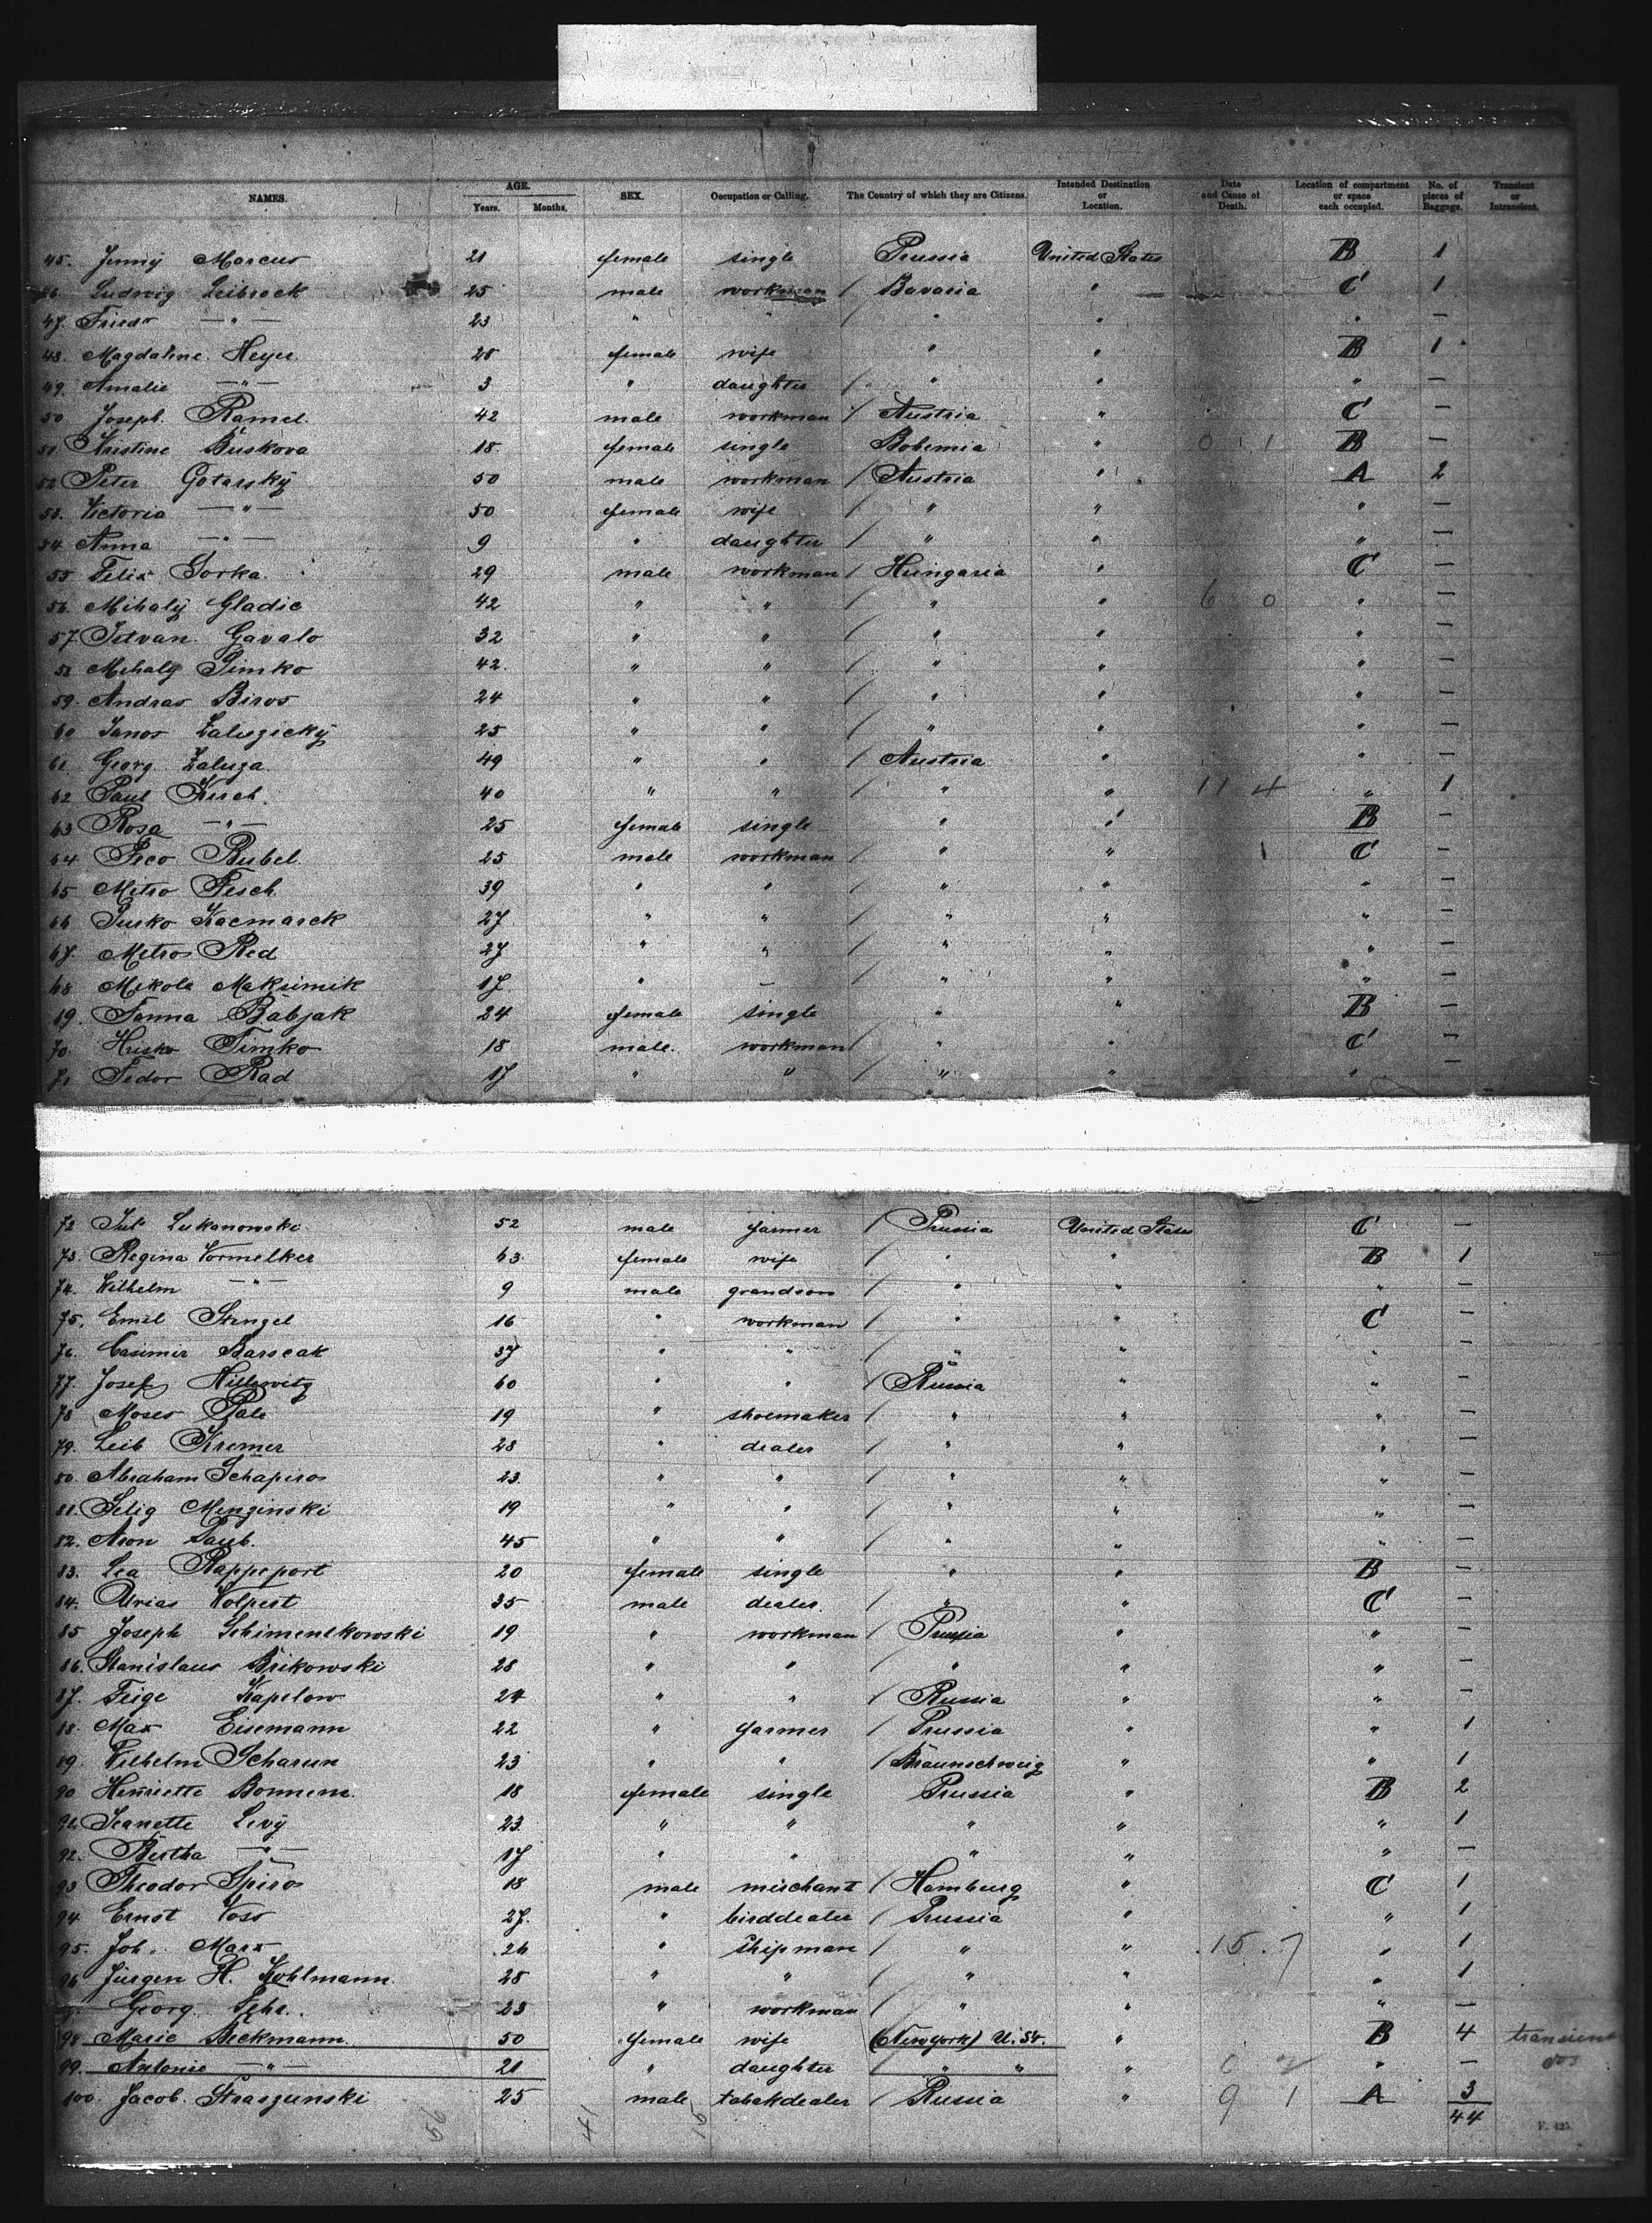 NAMES. AGE. Years. Months. SEX. Occupation or Calling. The Country of which they are Citizens. Intended Destination or Location. Date and Cause of Death. Location of compartment or space each occupied. No. of pieces of Baggage. Transient or Intransient.
45. Jenny Marcus 21 female single Prussia United States B 1
46 Ludwig Leibrock 25 male workman / Bavaria " C 1
47. Friedr —"— 23 " " / " " " —
48. Magdaline Heyer 28 female wife " " B 1
49. Amalie —"— 3 " daughter / " " " —
50 Joseph Ramel 42 male workman / Austria " C —
51. Kristine Buskova 18. female single Bohemia " 0 1 B —
52 Peter Gotarsky 50 male workman / Austria " A 2
53. Victoria —"— 50 female wife / " " " —
54 Anna —"— 9 " daughter / " " " —
55 Felix Gorka 29 male workman / Hungaria " C —
56. Mihaly Gladic 42 " " / " " 6 0 " —
57. Istvan Gavalo 32 " " / " " " —
58 Mihaly Simko 42. " " / " " " —
59. Andras Biros 24 " " / " " " —
60 Janos Zaluzicky 25 " " / " " " —
61. Georg Zaluza 49 " " / Austria " " —
62 Paul Kirch 40 " " / " " 11 4 " 1
63 Rosa —"— 25 female single " " B —
64 Feco Bubel 25 male workman / " " 1 C —
65 Mitro Fesch 39 " " / " " " —
66 Jurko Kacmarek 27 " " / " " " —
67. Metros Red 27 " " / " " " —
68 Mikola Maksimik 17. " — / " " " —
69. Fanna Babjak 24 female single " " B —
70. Hrisko Timko 18 male. workman / " " C —
71 Fedor Rad 17 " " / " " " —
72 Jul Lukanowski 52 male farmer / Prussia United States C —
73. Regina Vormelker 63 female wife / " " B 1
74. Wilhelm —"— 9 male grandson / " " " —
75. Emil Stengel 16 " workman / " " C —
76. Casimir Barscak 37 " " / " " " —
77. Josef Hillewitz 60 " " / Russia " " —
78 Moses Pale 19 " shoemaker / " " " —
79. Leib Kremer 28 " dealer / " " " —
80. Abraham Schapiros 23 " " / " " " —
81. Selig Menzinski 19 " " / " " " —
82. Aron Taub. 45 " " / " " " —
83. Lea Rappeport 20 female single " " B —
84. Urias Wolpert 35 male dealer. / " " C —
85 Joseph Schimenlkowski 19 " workman / Prussia " " —
86. Stanislaus Brikowski 28 " " / " " " —
87. Feige Kapelow 24 " " / Russia " " —
88. Max Eisemann 22 " farmer / Prussia " " 1
89. Wilhelm Scharun 23 " " / Braunschweig " " 1
90 Henriette Bonnem 18 female single Prussia " B 2
91. Jeanette Levy 23. " " " " " 1
92. Bertha —"— 17 " " " " " —
93 Theodor Spiros 18 male merchant / Hamburg " C 1
94 Ernst Voss 27. " birddealer / Prussia " " 1
95. Joh. Marx 26 " shipman / " " 15. 7 " 1
96 Jürgen H. Kohlmann. 28 " " / " " " 1
Georg 23 " workman / " " " —
98 Marie Beckmann 50 female wife (New York) U. St. " B 4 transient
99. Antonie —"— 21 " daughter " " " 6 " — dos
100. Jacob Straszunski 25 male tabakdealer / Russia " 9 1 A 3
44
41